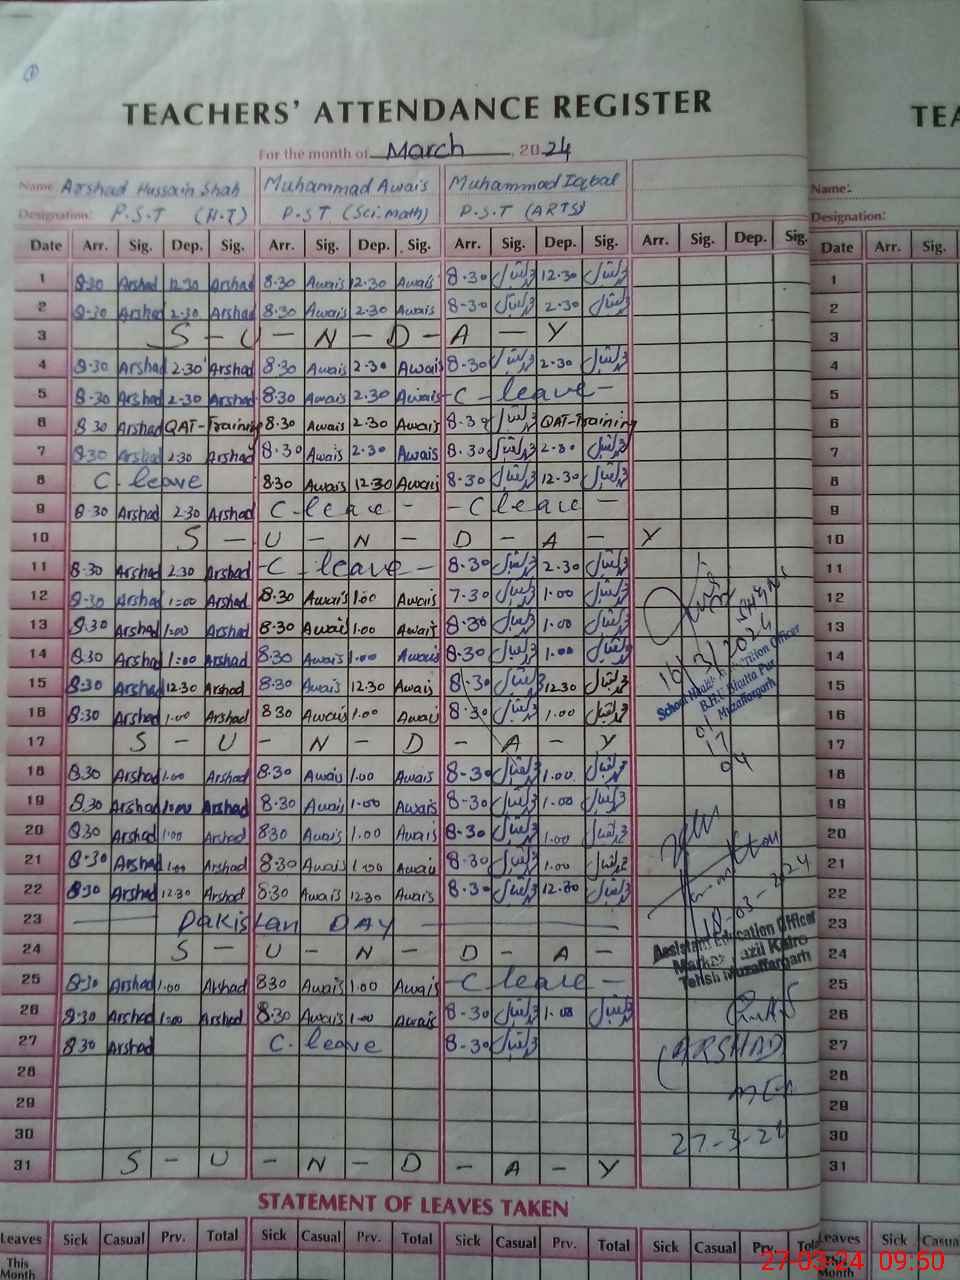 TEACHERS' ATTENDANCE REGISTER
TEA
For the month of March, 2024
Name Arshad Hussain Shah Muhammad Awais Muhammad Iqbal Name:
Designation: P.S.T (H.T) P.S.T (Sci.math) P.S.T (ARTS) Designation:
Date Arr. Sig. Dep. Sig. Arr. Sig. Dep. Sig. Arr. Sig. Dep. Sig. Arr. Sig. Dep. Sig. Date Arr. Sig.
1 8.30 Arshad 12.30 Arshad 8.30 Awais 12.30 Awais 8.30 12.30 1
2 8.30 Arshad 2.30 Arshad 8.30 Awais 2.30 Awais 8-30 2.30 2
3 S-U-N-D-A-Y 3
4 8.30 Arshad 2.30 Arshad 8.30 Awais 2.30 Awais 8.30 2.30 4
5 8.30 Arshad 2.30 Arshad 8.30 Awais 2.30 Awais -C-leave- 5
6 8.30 Arshad QAT-Training 8.30 Awais 2.30 Awais 8.30 QAT-Training 6
7 8.30 Arshad 2.30 Arshad 8.30 Awais 2.30 Awais 8.30 2.30 7
8 C.leave 8.30 Awais 12.30 Awais 8.30 12.30 8
9 8.30 Arshad 2.30 Arshad C-leave- -C leave- 9
10 S-U-N-D-A-Y 10
11 8.30 Arshad 2.30 Arshad -C leave- 8.30 2.30 11
12 8.30 Arshad 1.00 Arshad 8.30 Awais 1.00 Awais 7.30 1.00 12
13 8.30 Arshad 1.00 Arshad 8.30 Awais 1.00 Awais 8.30 1.00 13
14 8.30 Arshad 1.00 Arshad 8.30 Awais 1.00 Awais 8.30 1.00 16/3/2024 14
15 8.30 Arshad 12.30 Arshad 8.30 Awais 12.30 Awais 8.30 12.30 School Health & Nutrition Officer 15
B.H.U Bhutta Pur
Muzaffargarh
16 8.30 Arshad 1.00 Arshad 8.30 Awais 1.00 Awais 8.30 1.00 16
17 S-U-N-D-A-Y 17
18 8.30 Arshad 1.00 Arshad 8.30 Awais 1.00 Awais 8-30 1.00 18
19 8.30 Arshad 1.00 Arshad 8.30 Awais 1.00 Awais 8-30 1.00 19
20 8.30 Arshad 1.00 Arshad 8.30 Awais 1.00 Awais 8-30 1.00 20
21 8.30 Arshad 1.00 Arshad 8.30 Awais 1.00 Awais 8.30 1.00 21
22 8.30 Arshad 12.30 Arshad 8.30 Awais 12.30 Awais 8.30 12.30 18-03-2024 22
23 Pakistan DAY 23
24 S-U-N-D-A-Y Assistant Education Officer 24
Tehsil Muzaffargarh
25 8.30 Arshad 1.00 Arshad 8.30 Awais 1.00 Awais -C leave- 25
26 8.30 Arshad 1.00 Arshad 8.30 Awais 1.00 Awais 8-30 1.00 26
27 8.30 Arshad C.leave 8-30 (ARSHAD 27
28 28
29 29
30 27-3-24 30
31 S-U-N-D-A-Y 31
STATEMENT OF LEAVES TAKEN
Leaves Sick Casual Prv. Total Sick Casual Prv. Total Sick Casual Prv. Total Sick Casual Prv. Total Leaves Sick Casual
This Month This Month
27-03-24 09:50